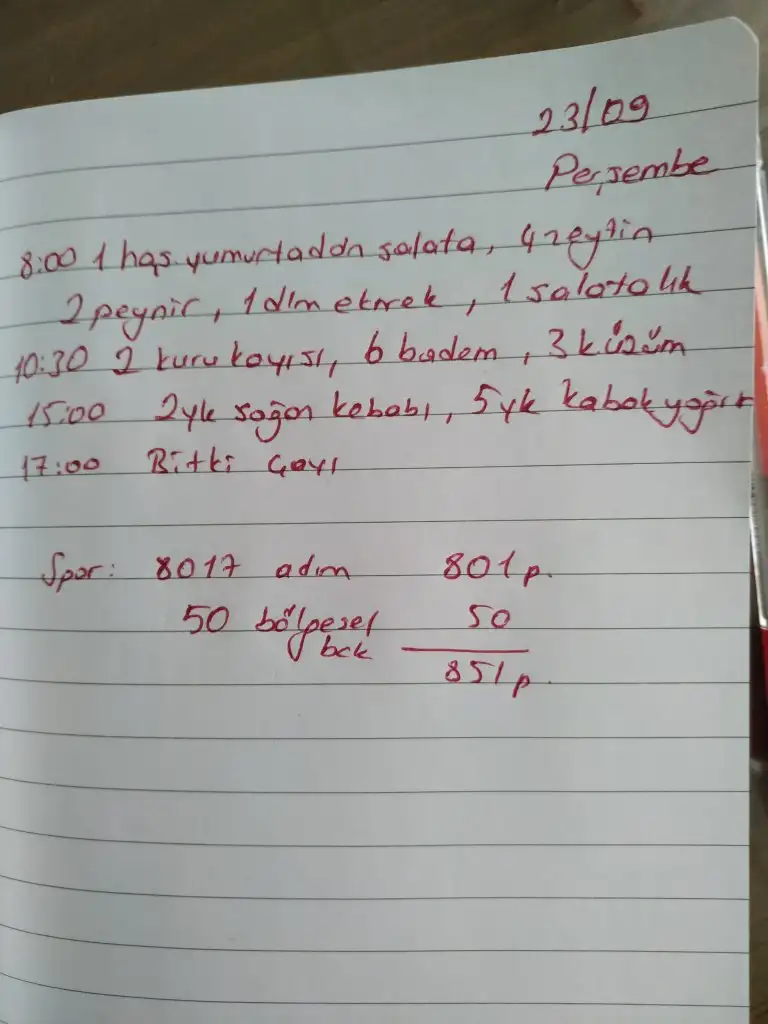 23/09
Perşembe
8:00 1 haş. yumurtadan salata, 4 zeytin
2 peynir, 1 dlm ekmek, 1 salatalık
10:30 2 kuru kayısı, 6 badem, 3 k üzüm
15:00 2 yk soğan kebabı, 5 yk kabak yoğurt
17:00 Bitki çayı
Spor: 8017 adım 801 p.
50 bölgesel 50
bck
851 p.